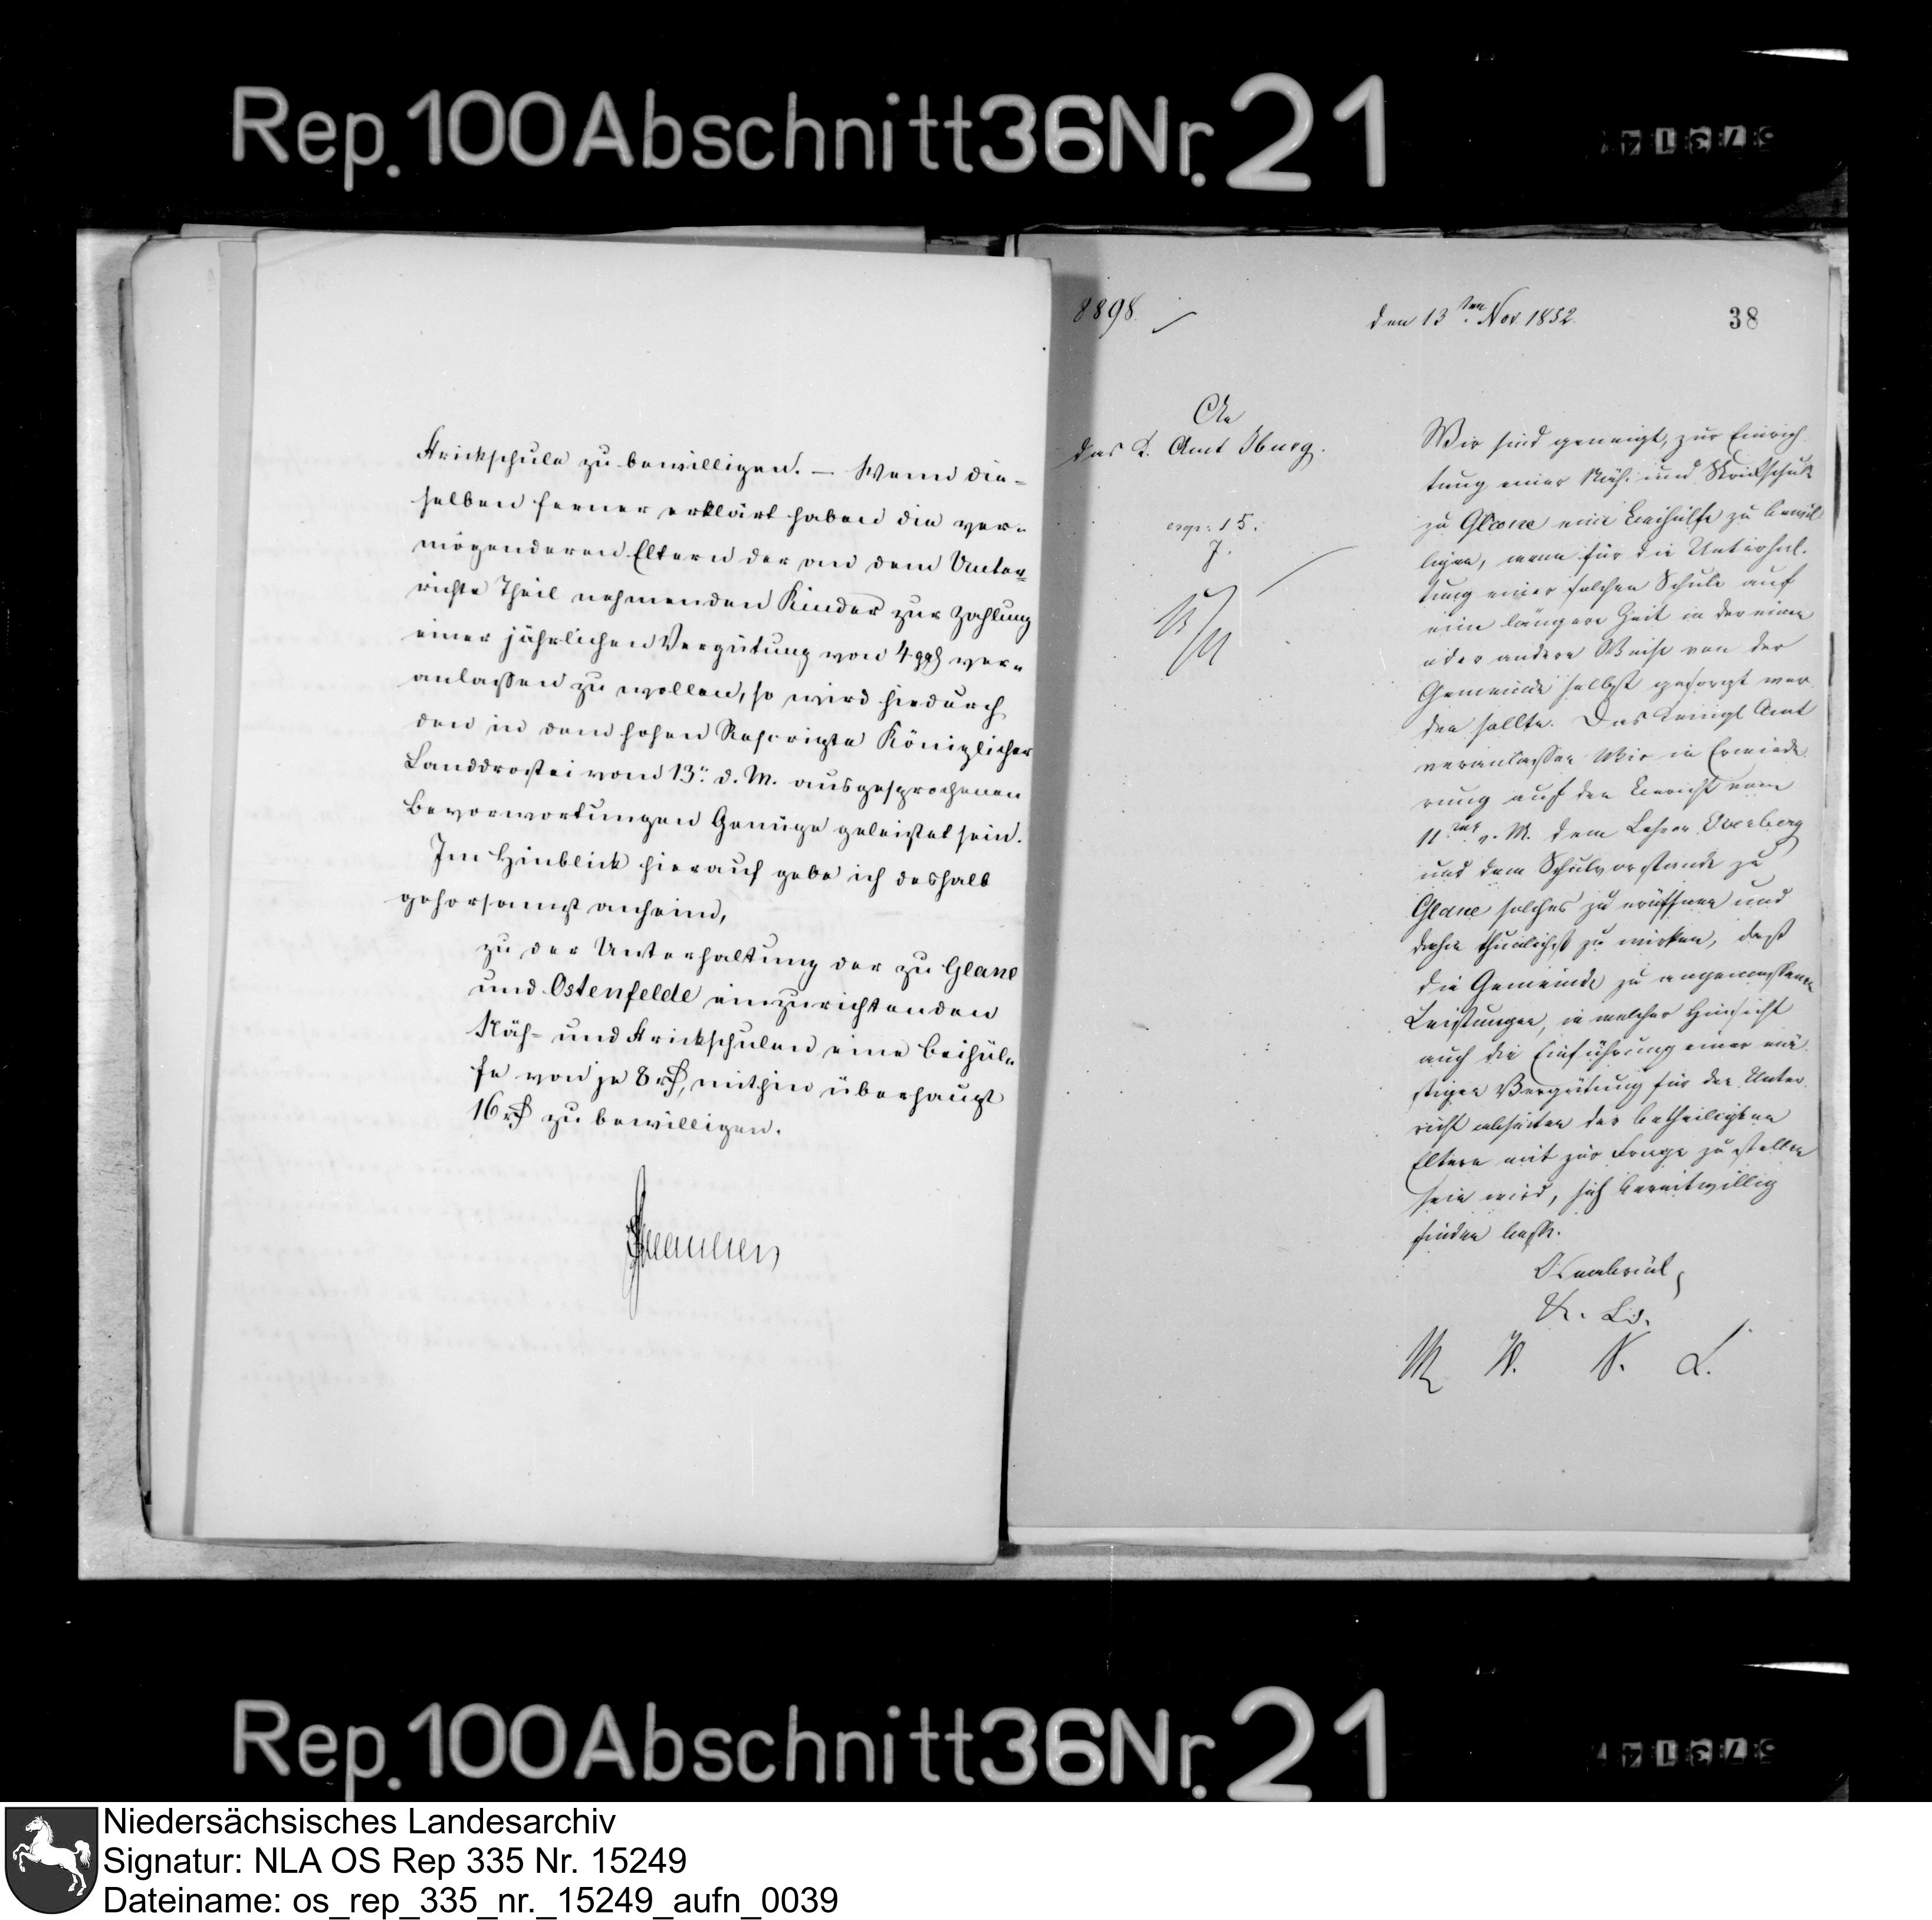 Rep. 100 Abschnitt 36 Nr. 21
Strickschule zu bewilligen. — Wenn die-
selben ferner erklärt haben die ver-
mögenderen Eltern der an dem Unter-
richte Theil nehmenden Kinder zur Zahlung
einer jährlichen Vergütung von 4 ggl ver-
anlassen zu wollen, so wird hiedurch
den in dem hohen Rescripte Königlicher
Landdrostei vom 13. d. M. ausgesprochenen
Bevorwortungen Genüge geleistet sein.
Im Hinblick hierauf gebe ich deshalb
gehorsamst anheim,
zu der Unterhaltung der zu Glane
und Ostenfelde einzurichtenden
Näh- und Strickschulen eine Beihül-
fe von je 8 rß, mithin überhaupt
16 rß zu bewilligen.
8898.
den 13ten Nov 1852.
38
An
das K. Amt Iburg.
exp: 15.
J.
Wir sind geneigt, zur Einrich-
tung einer Näh- und Strickschule
zu Glane eine Beihülfe zu bewil-
ligen, wenn für die Unterhal-
tung einer solchen Schule auf
eine längere Zeit in der einen
oder andern Weise von der
Gemeinde selbst gesorgt wer-
den sollte. Das Königl Amt
veranlassen Wir in Erwiede-
rung auf den Bericht vom
11. v. M. dem Lehrer Overberg
und dem Schulvorstande zu
Glane solches zu eröffnen und
dahin thunlichst zu wirken, daß
die Gemeinde zu angemessenen
Leistungen, in welcher Hinsicht
auch die Einführung einer mä-
ßigen Vergütung für den Unter-
richt abseiten der betheiligten
Eltern mit zur Frage zu stellen
sein wird, sich bereitwillig
finden lasse.
Osnabrück,
K. Ld.
M W. N. L.
Rep. 100 Abschnitt 36 Nr. 21
Niedersächsisches Landesarchiv
Signatur: NLA OS Rep 335 Nr. 15249
Dateiname: os_rep_335_nr._15249_aufn_0039